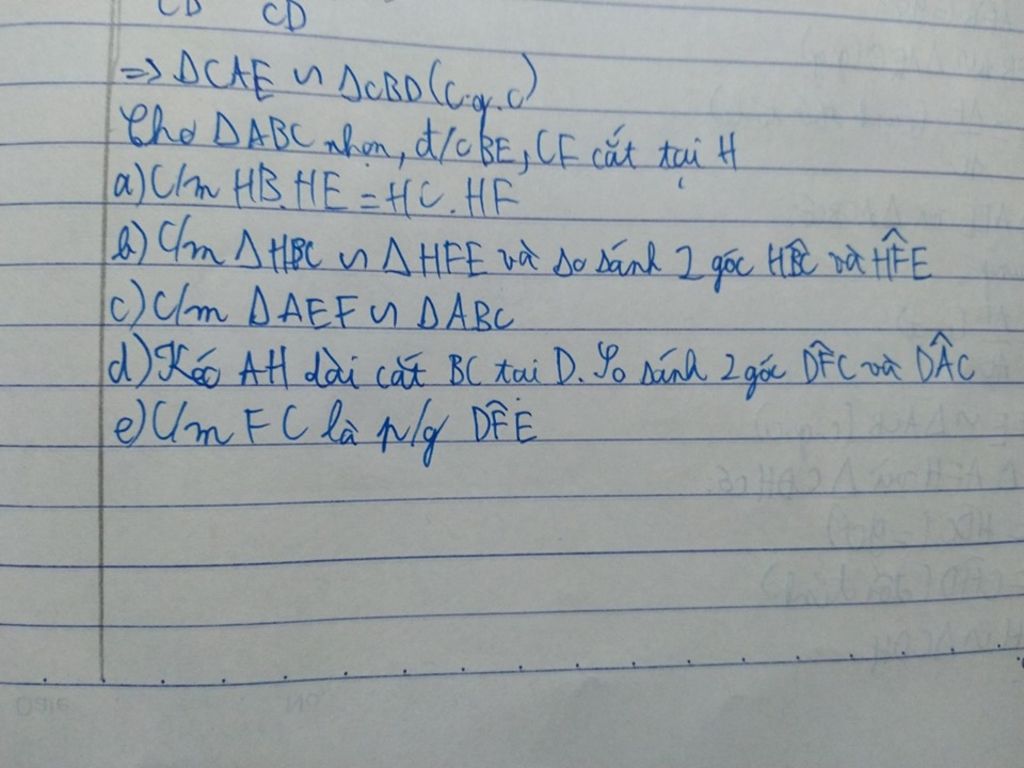 CD CD
=> ΔCAE ∽ ΔCBD (c.g.c)
Cho ΔABC nhọn, đ/c BE, CF cắt tại H
a) C/m HB.HE = HC.HF
b) C/m ΔHBC ∽ ΔHFE và so sánh 2 góc HB̂C và HF̂E
c) C/m ΔAEF ∽ ΔABC
d) Kéo AH dài cắt BC tại D. So sánh 2 góc DF̂C và DÂC
e) C/m FC là p/g DF̂E
Date No